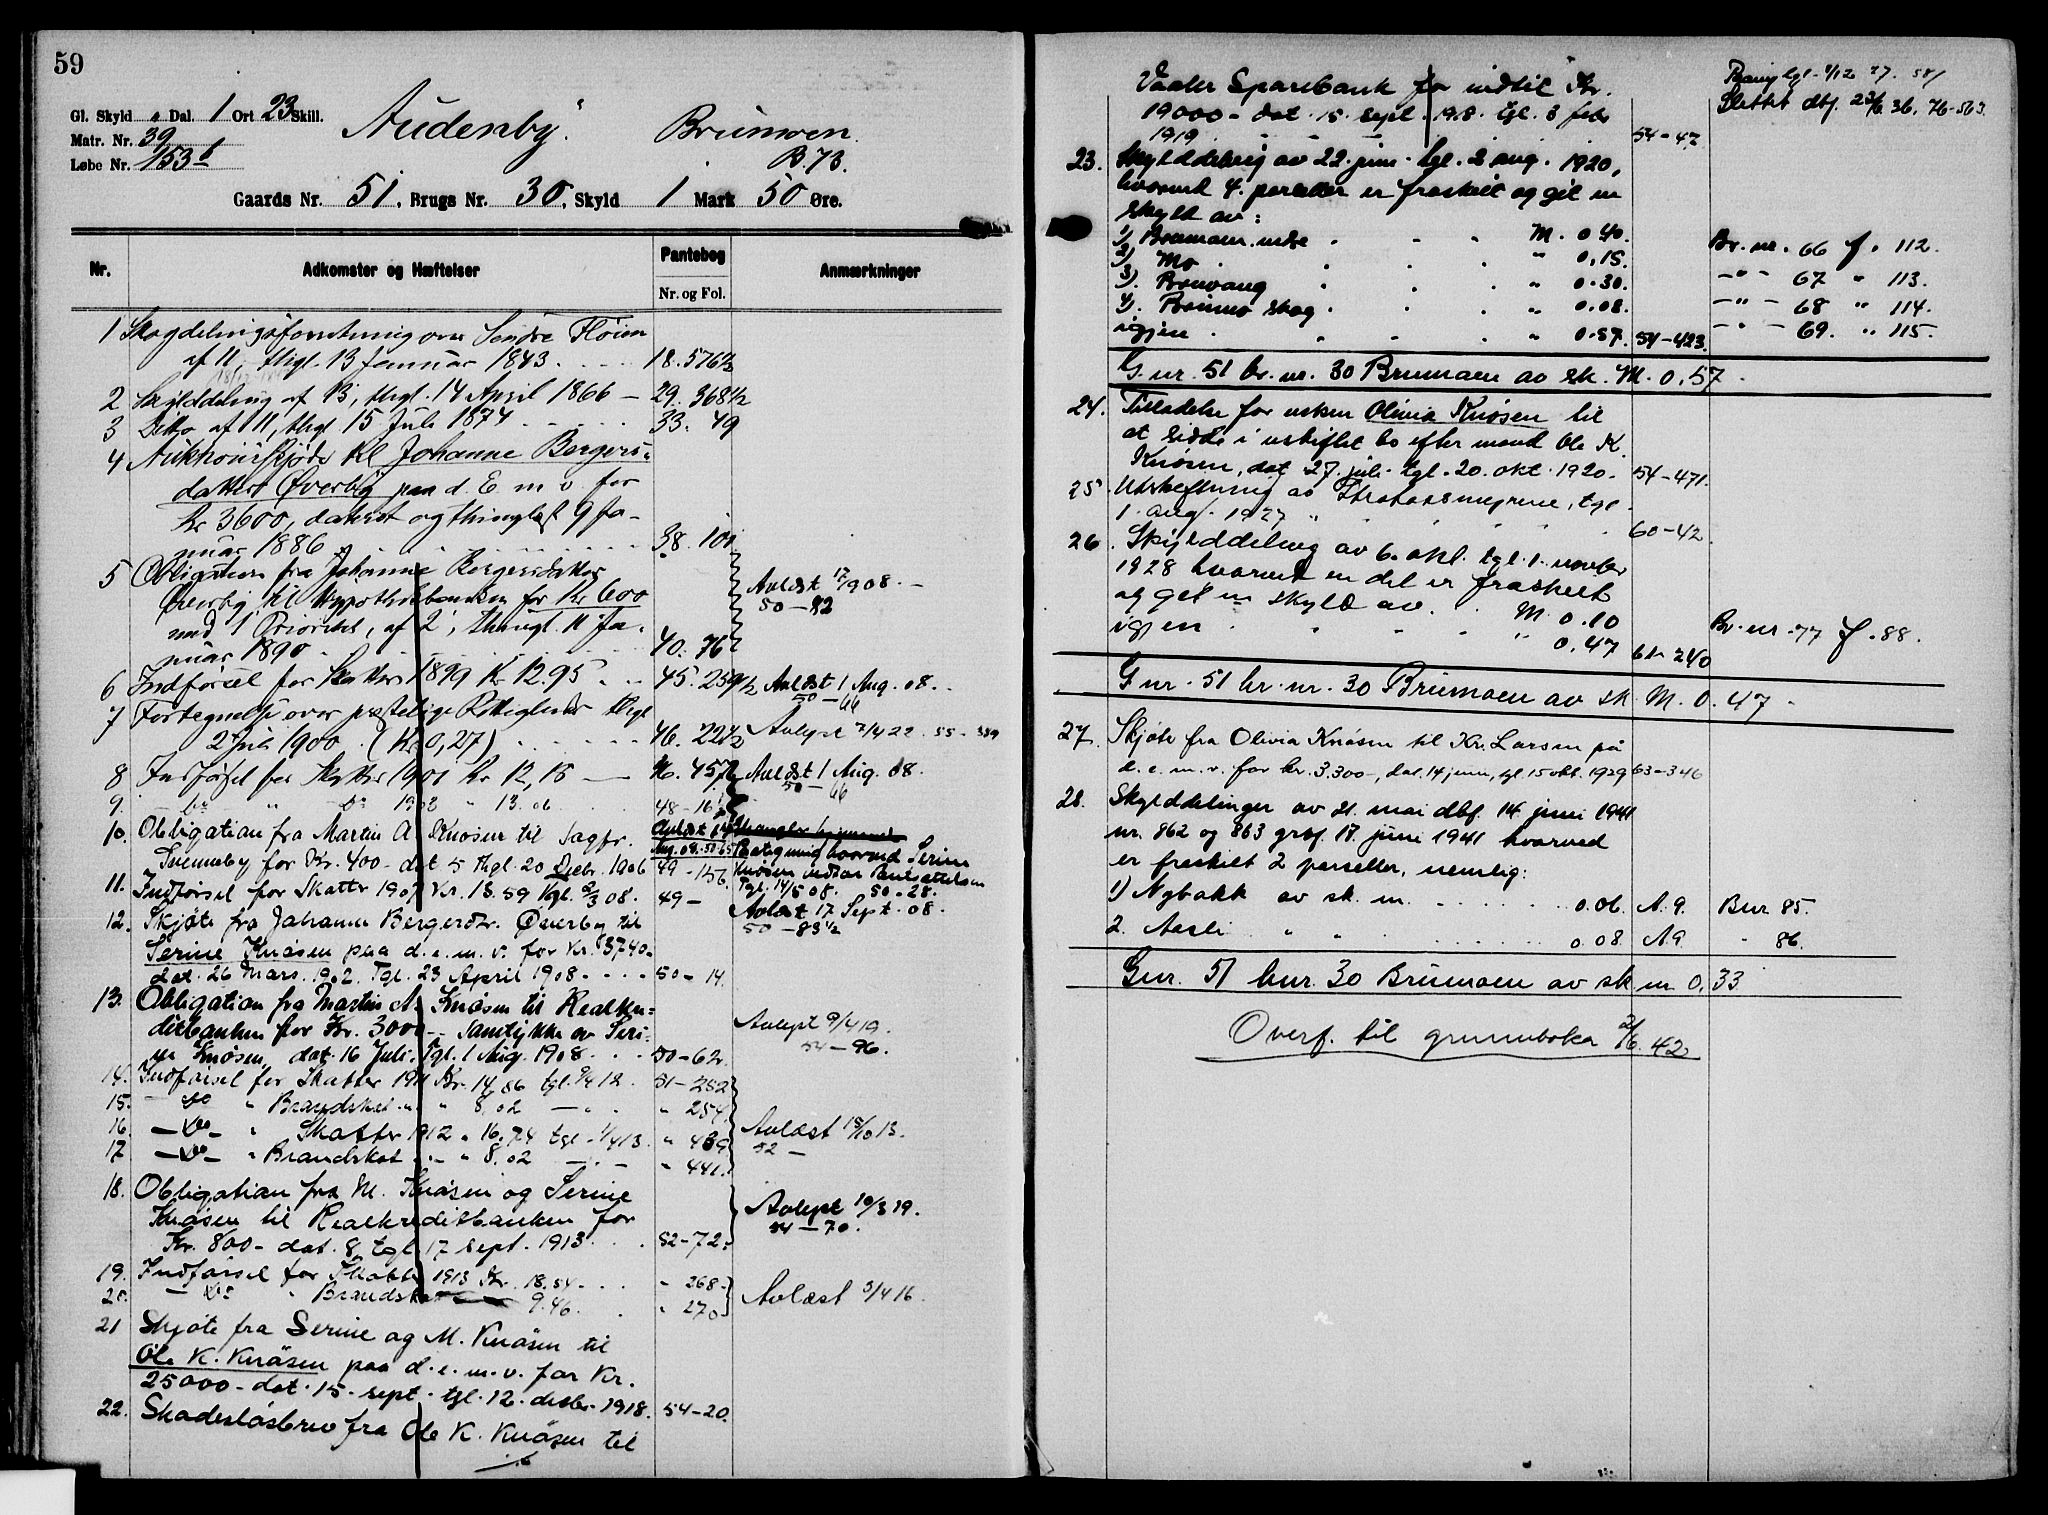 59
Gl. Skyld " Dal. 1 Ort 23 Skill.
Matr. Nr. 39
Løbe Nr. 153
Audenby. Brumoen
B. 73.
Gaards Nr. 51, Brugs Nr. 30, Skyld 1 Mark 50 Øre.
Nr. Adkomster og Hæftelser Pantebog Anmærkninger
Nr. og Fol.
1 Skogdelingsforretning over Søndre Fløien
af 11, thgl. 13 Januar 1843 . . . . 18. 576½
2 Skylddeling af 13, thgl. 14 April 1866 — 29. 368½
3 Ditto af 11, thgl 15 Juli 1874 . . . . 33. 49
4 Auktionsskjøde til Johanne Bergers-
datter Øverby paa d. E. m v. for
Kr 3600, dateret og thinglæst 9 Ja-
nuar 1886 . . . . 38. 101
5 Obligation fra Johanne Bergersdatter
Øverby til Hypothekbanken for Kr 600
med 1 Prioritet, af 2, thingl. 11 Ja-
nuar 1890 . . . 40. 76
Avlæst 17/9 08. —
50 — 82
6 Indførsel for Skatter 1899 Kr 12.95 . . . 45. 259½ Avlæst 1 Aug. 08. .
50 — 66
7 Fortegnelse over præstelige Rettigheder thgl
2 Juli 1900 . (Kr 0,27) . . . . 46. 22½ Avlyst 7/4 22 55 - 389
8 Indførsel for Skatter 1901 Kr 12,15 — 46. 457 Avlæst 1 Aug. 08.
50 — 66
9. — do " do 1902 " 13.06 . . . 48 - 16
10. Obligation fra Martin A. Knøsen til Sagfr.
Svenneby for Kr. 400 - dat 5 Thgl. 20 Decbr. 1906 49 - 156.
Avlæst 14
Aug. 08. 50-65
hvorved Serine
Knøsen
Tgl. 14/5 08. 50 - 28.
11. Indførsel for Skatter 1907 Kr. 13.59 Tgl. 2/3 08. 49 —
Avlæst 17 Sept. 08.
50 — 83½
12. Skjøte fra Johanne Bergersdr. Øverby til
Serine Knøsen paa d. e. m. v. for Kr. 3740.
Dat. 26 Mars 1902. Tgl. 23 April 1908 - . . . 50 - 14.
13. Obligation fra Martin A. Knøsen til Realkre-
ditbanken for Kr. 3000 - Samtykke av Seri-
ne Knøsen, dat. 16 Juli. Tgl. 1 Aug. 1908 . . . 50 - 62.
Avlyst 9/4 19.
54 — 96.
14. Indførsel for Skatter 1911 Kr. 14.86 tgl. 9/4 12. 51 - 252
15. — do " Brandskat " " 8.02 — . . " 254.
16. — do — " Skatter 1912 " 16.74 tgl. 1/4 13. " 439
17 — do — " Brandskat — " 8.02 — . — " 441.
Avlæst 18/10 13.
52 —
18. Obligation fra M. Knøsen og Serine
Knøsen til Realkreditbanken for
Kr. 800 - dat. 8, tgl 17 sept. 1913 . . . 52 - 72.
Avlyst 10/3 19.
54 — 70.
19. Indførsel for Skatter 1913 Kr. 18.54 - . . . " 268 -
20. — do " Brandskat 9.46 . . " 270
Avlæst 5/4 16.
21 Skjøte fra Serine og M. Knøsen til
Ole K. Knøsen paa d. e. m. v. for Kr.
25000 - dat. 15. sept. tgl. 12. desbr. 1918. 54 - 20.
22. Skadesløsbrev fra Ole K. Knøsen til
Vaaler Sparebank for indtil Kr.
19000 - dat. 15. sept. 1918. tgl. 3 febr.
1919 54 - 47
Slettet dbf. 23/6 36. 76 - 563.
23. Skylddeling av 22. juni. tgl. 2 aug. 1920,
hvorved 4. parseller er fraskilt og git en
skyld av:
1) Brumoen indre . . . M. 0.40. Br. nr. 66 f. 112.
2) Mo . . . " 0.15. — " — 67 " 113.
3). Bruvang . . . " 0.30. — " — 68 " 114.
4). Brumo skog . . . " 0.08. — " — 69. " 115.
igjen . . . " 0.57. 54 - 423.
G. nr. 51 br. nr. 30 Brumoen av sk. M. 0,57.
24. Tilladelse for enken Olivia Knøsen til
at sidde i uskiftet bo efter mand Ole K.
Knøsen, dat 27. juli. tgl. 20. okt. 1920. 54 - 471.
25. Utskiftning av Strataasmyrene, tgl.
1. aug. 1927 " " " 60 - 42.
26. Skylddeling av 6. okt. tgl. 1. novbr
1928 hvorved en del er fraskilt
og git en skyld av. . M. 0.10 Br. nr. 77 f. 88.
igjen . . . " 0.47 61 - 240
G nr. 51 br. nr. 30 Brumoen av sk. M. 0.47.
27. Skjøte fra Olivia Knøsen til Kr. Larsen på
d. e. m. v. for kr. 3.300 -, dat. 14 juni, tgl. 15 okt. 1929 63 - 346
28. Skylddelinger av 21. mai dbf. 14 juni 1941
nr. 862 og 863 grbf. 17. juni 1941 hvorved
er fraskilt 2 parseller, nemlig:
1) Nybakk av sk. m. . . . 0.06. A. 9. Bnr 85.
2. Aasli " " . . . 0.08. A. 9. " 86.
Gnr. 51 bnr. 30 Brumoen av sk m 0,33
Overf. til grunnboka 2/6. 42.